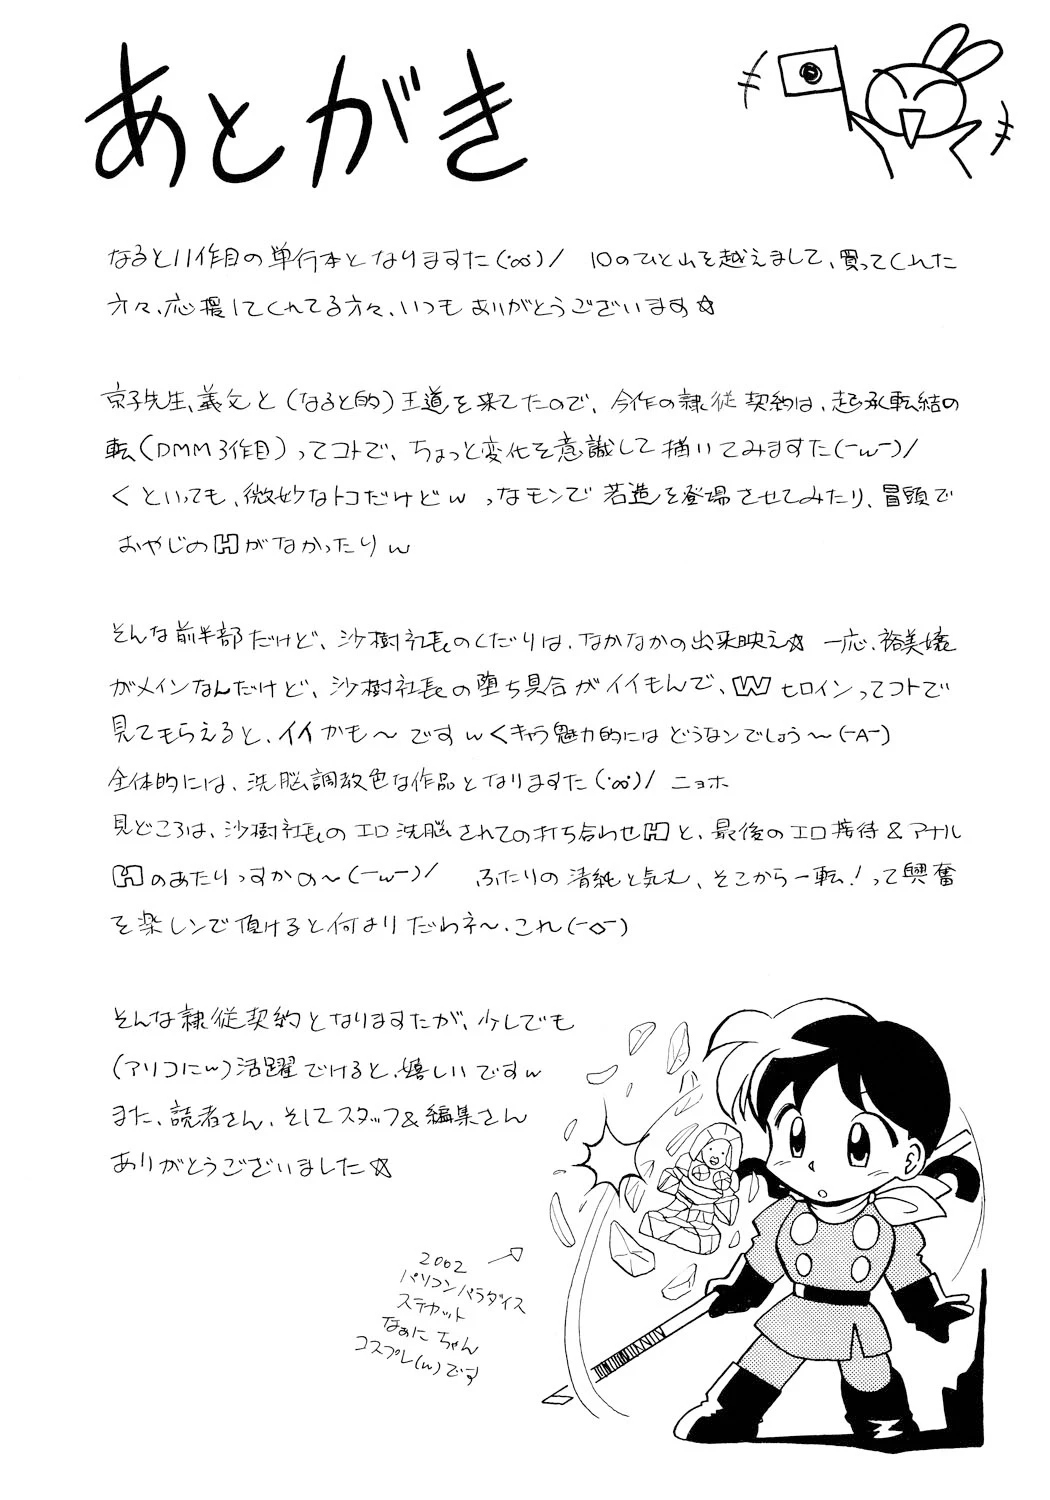 あとがき
なると11作目の単行本となりますた(°∞°)/ 10のひと山を越えまして、買ってくれた
方々、応援してくれてる方々、いつもありがとうございます☆
京子先生、義父と(なると的)王道を来てたので、今作の隷従契約は、起承転結の
転(DMM3作目)ってコトで、ちょっと変化を意識して描いてみますた(ーwー)/
くといっても、微妙なトコだけどw っなモンで若造を登場させてみたり、冒頭で
おやじのHがなかったりw
そんな前半部だけど、沙樹社長のくだりは、なかなかの出来映え☆ 一応、裕美嬢
がメインなんだけど、沙樹社長の堕ち具合がイイもんで、Wヒロインってコトで
見てもらえると、イイかも〜ですw くキャラ魅力的にはどうなンでしょう〜(ーAー)
全体的には、洗脳調教色な作品となりますた(°∞°)/ ニョホ
見どころは、沙樹社長のエロ洗脳されての打ち合わせHと、最後のエロ接待&アナル
Hのあたりっすかの〜(ーwー)/ ふたりの清純と気丈、そこから一転!って興奮
を楽しンで頂けると何よりだわネ〜、これ(ー◇ー)
そんな隷従契約となりますたが、少しでも
(アリコにw)活躍でけると、嬉しいですw
また、読者さん、そしてスタッフ&編集さん
ありがとうございました☆
2002
パソコンパラダイス
ステカット
なぁにちゃん
コスプレ(w)です